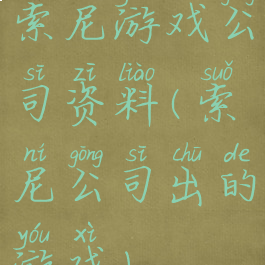 索尼游戏公
sī zī liào suǒ
司资料(索
ní gōng sī chū de
尼公司出的
yóu xì
游戏)